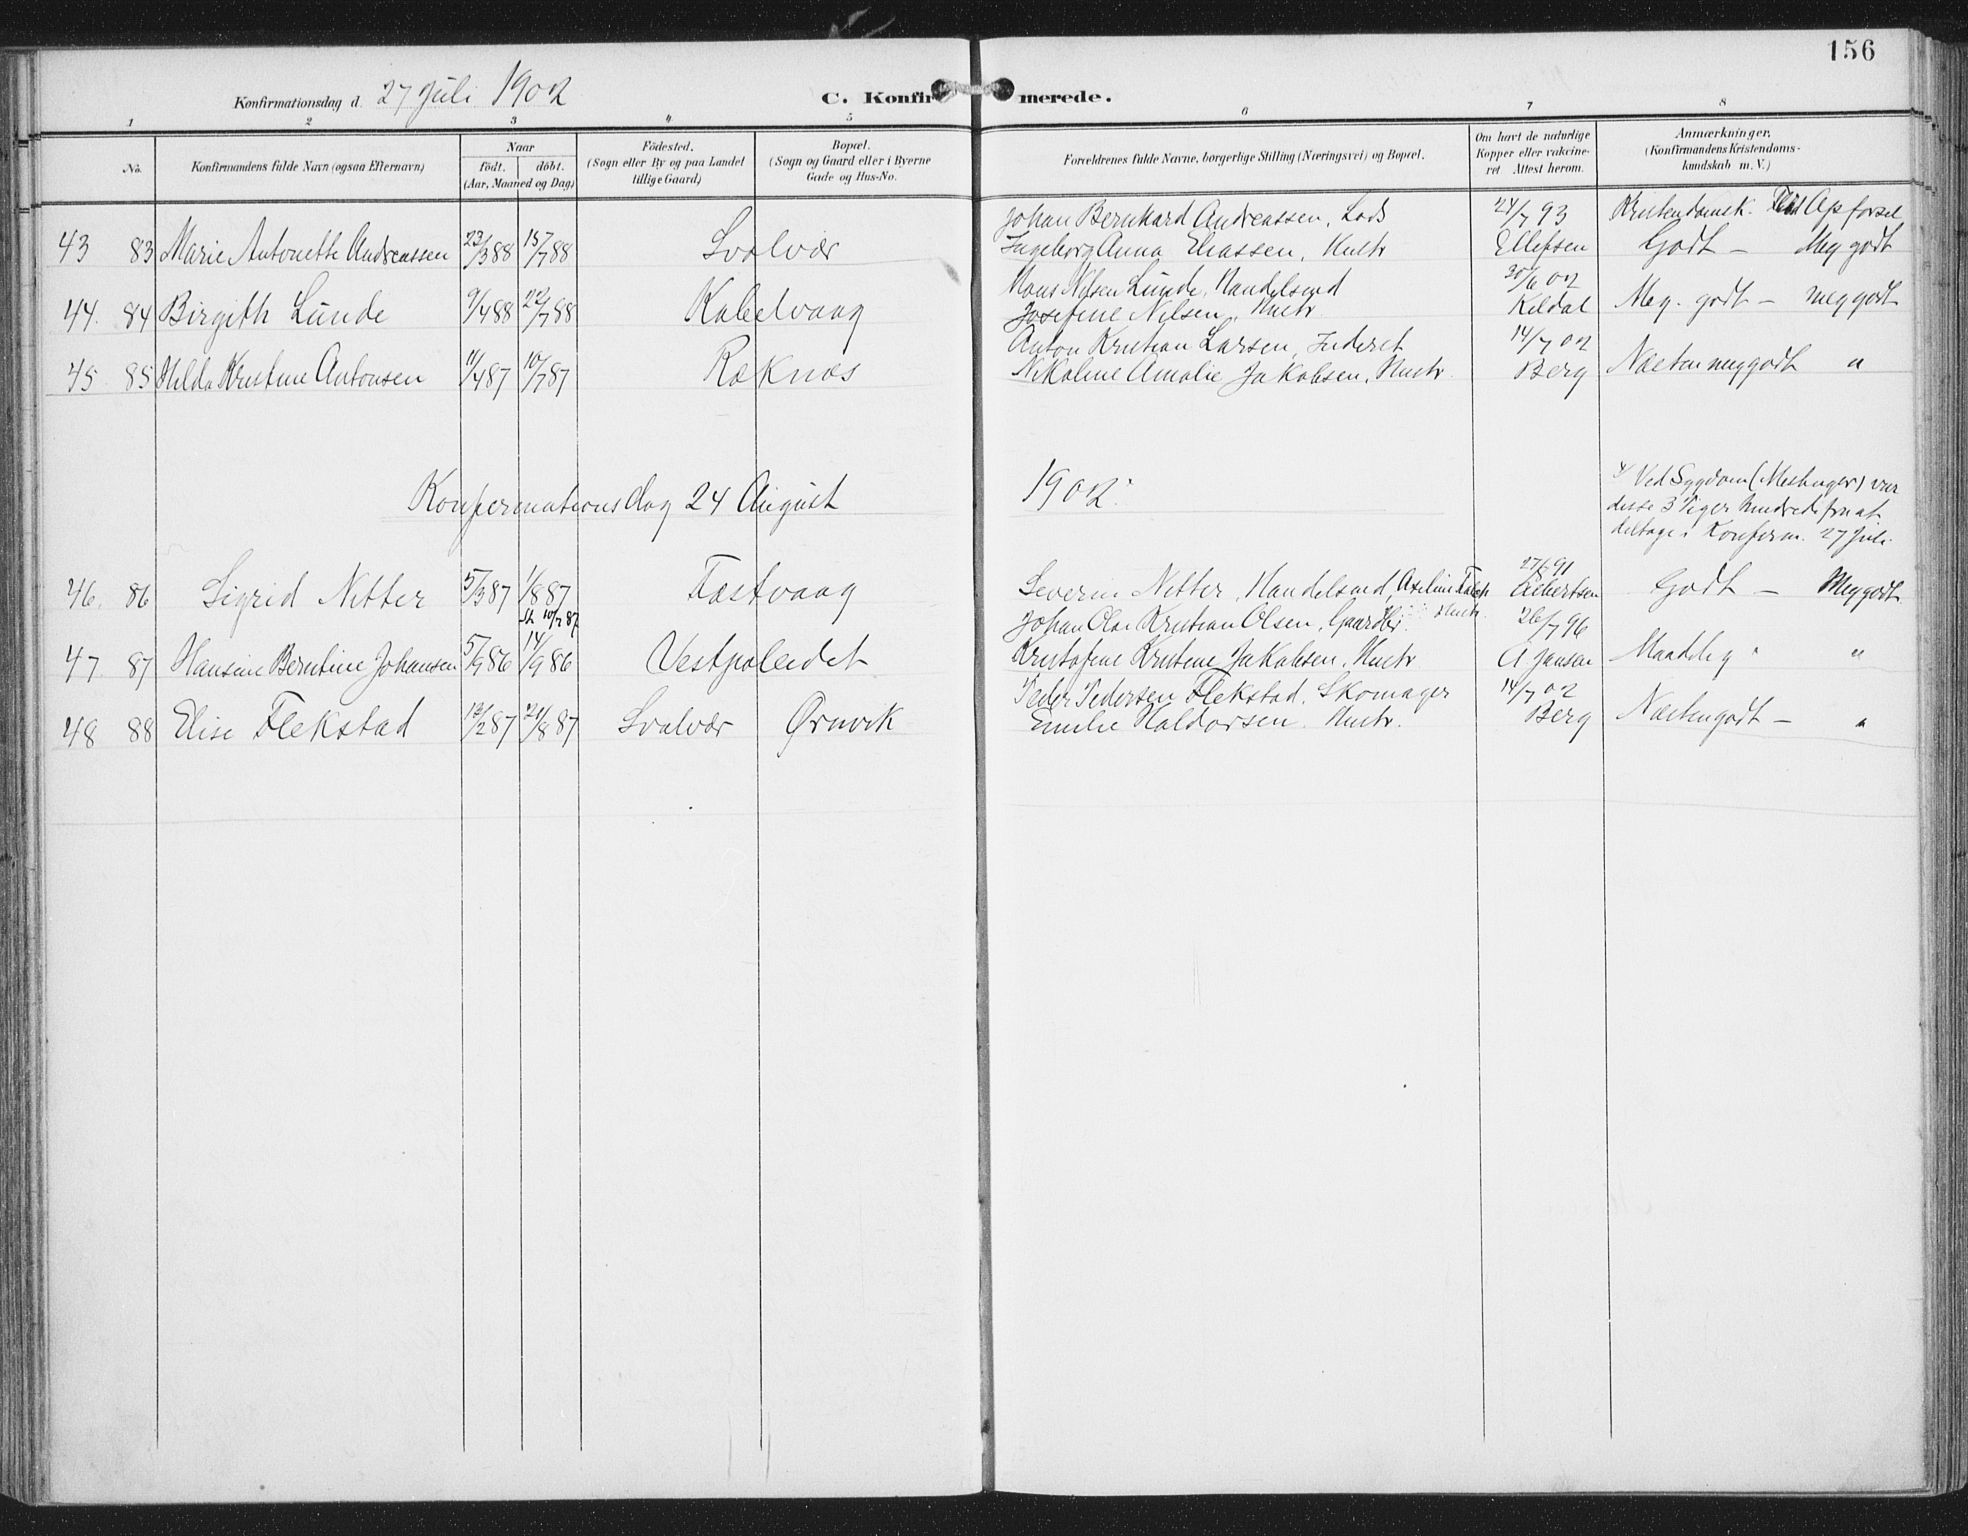 156
Konfirmationsdag d. 27 Juli 1902
C. Konfirmerede.
1 2 3 4 5 6 7 8
No.
Konfirmandens fulde Navn (ogsaa Efternavn)
Naar
födt. döbt.
(Aar, Maaned og Dag)
Födested.
(Sogn eller By og paa Landet
tillige Gaard)
Bopæl.
(Sogn og Gaard eller i Byerne
Gade og Hus-No.
Forældrenes fulde Navne, borgerlige Stilling (Næringsvei) og Bopæl.
Om havt de naturlige
Kopper eller vakcine-
ret Attest herom.
Anmærkninger.
(Konfirmandens Kristendoms-
kundskab m. V.)
Johan Bernhard Andreassen, Lods 24/7 93 Kristendomsk. Flid Opførsel
43 83 Marie Antonette Andreassen 23/3 88 15/7 88 Svolvær Ingeborg Anna Eliassen, Hustr Ellefsen Godt — Meg godt
Hans Nilsen Lunde, Handelsmd 30/6 02
44. 84 Birgith Lunde 9/4 88 22/7 88 Kabelvaag Josefine Nilsen, Hustr. Kildal Meg. godt — meg godt
Anton Kristian Larsen, Inderst 14/7 02
45 85 Hilda Kristine Antonsen 11/4 87 10/7 87 Ræknæs Nikoline Amalie Jakobsen, Hustr. Berg Næsten meg godt "
Konfirmationsdag 24 August 1902.
Ved Sygdom (Meslinger) var
disse 3 Piger hindrede fra at
deltage i Konfirm. 27 Juli.
46. 86 Sigrid Nitter 5/3 87 1/8 87 Fæstvaag Severin Nitter, Handelsmd, Axeline Falch Hustr. 27/ 91 Godt — Meg godt
10/7 87
Johan Olai Kristian Olsen, Gaardbr. 26/7 96
47. 87 Hansine Berntine Johansen 5/7 86 14/9 86 Vestpoleidet Kristofine Kristine Jakobsen, Hustr A Jansen Maadelig "
Peder Pedersen Flekstad, Skomager 14/7 02
48 88 Elise Flekstad 12/2 87 21/8 87 Svolvær Ørnvik Emilie Haldorsen. Hustr. Berg Næsten godt — "